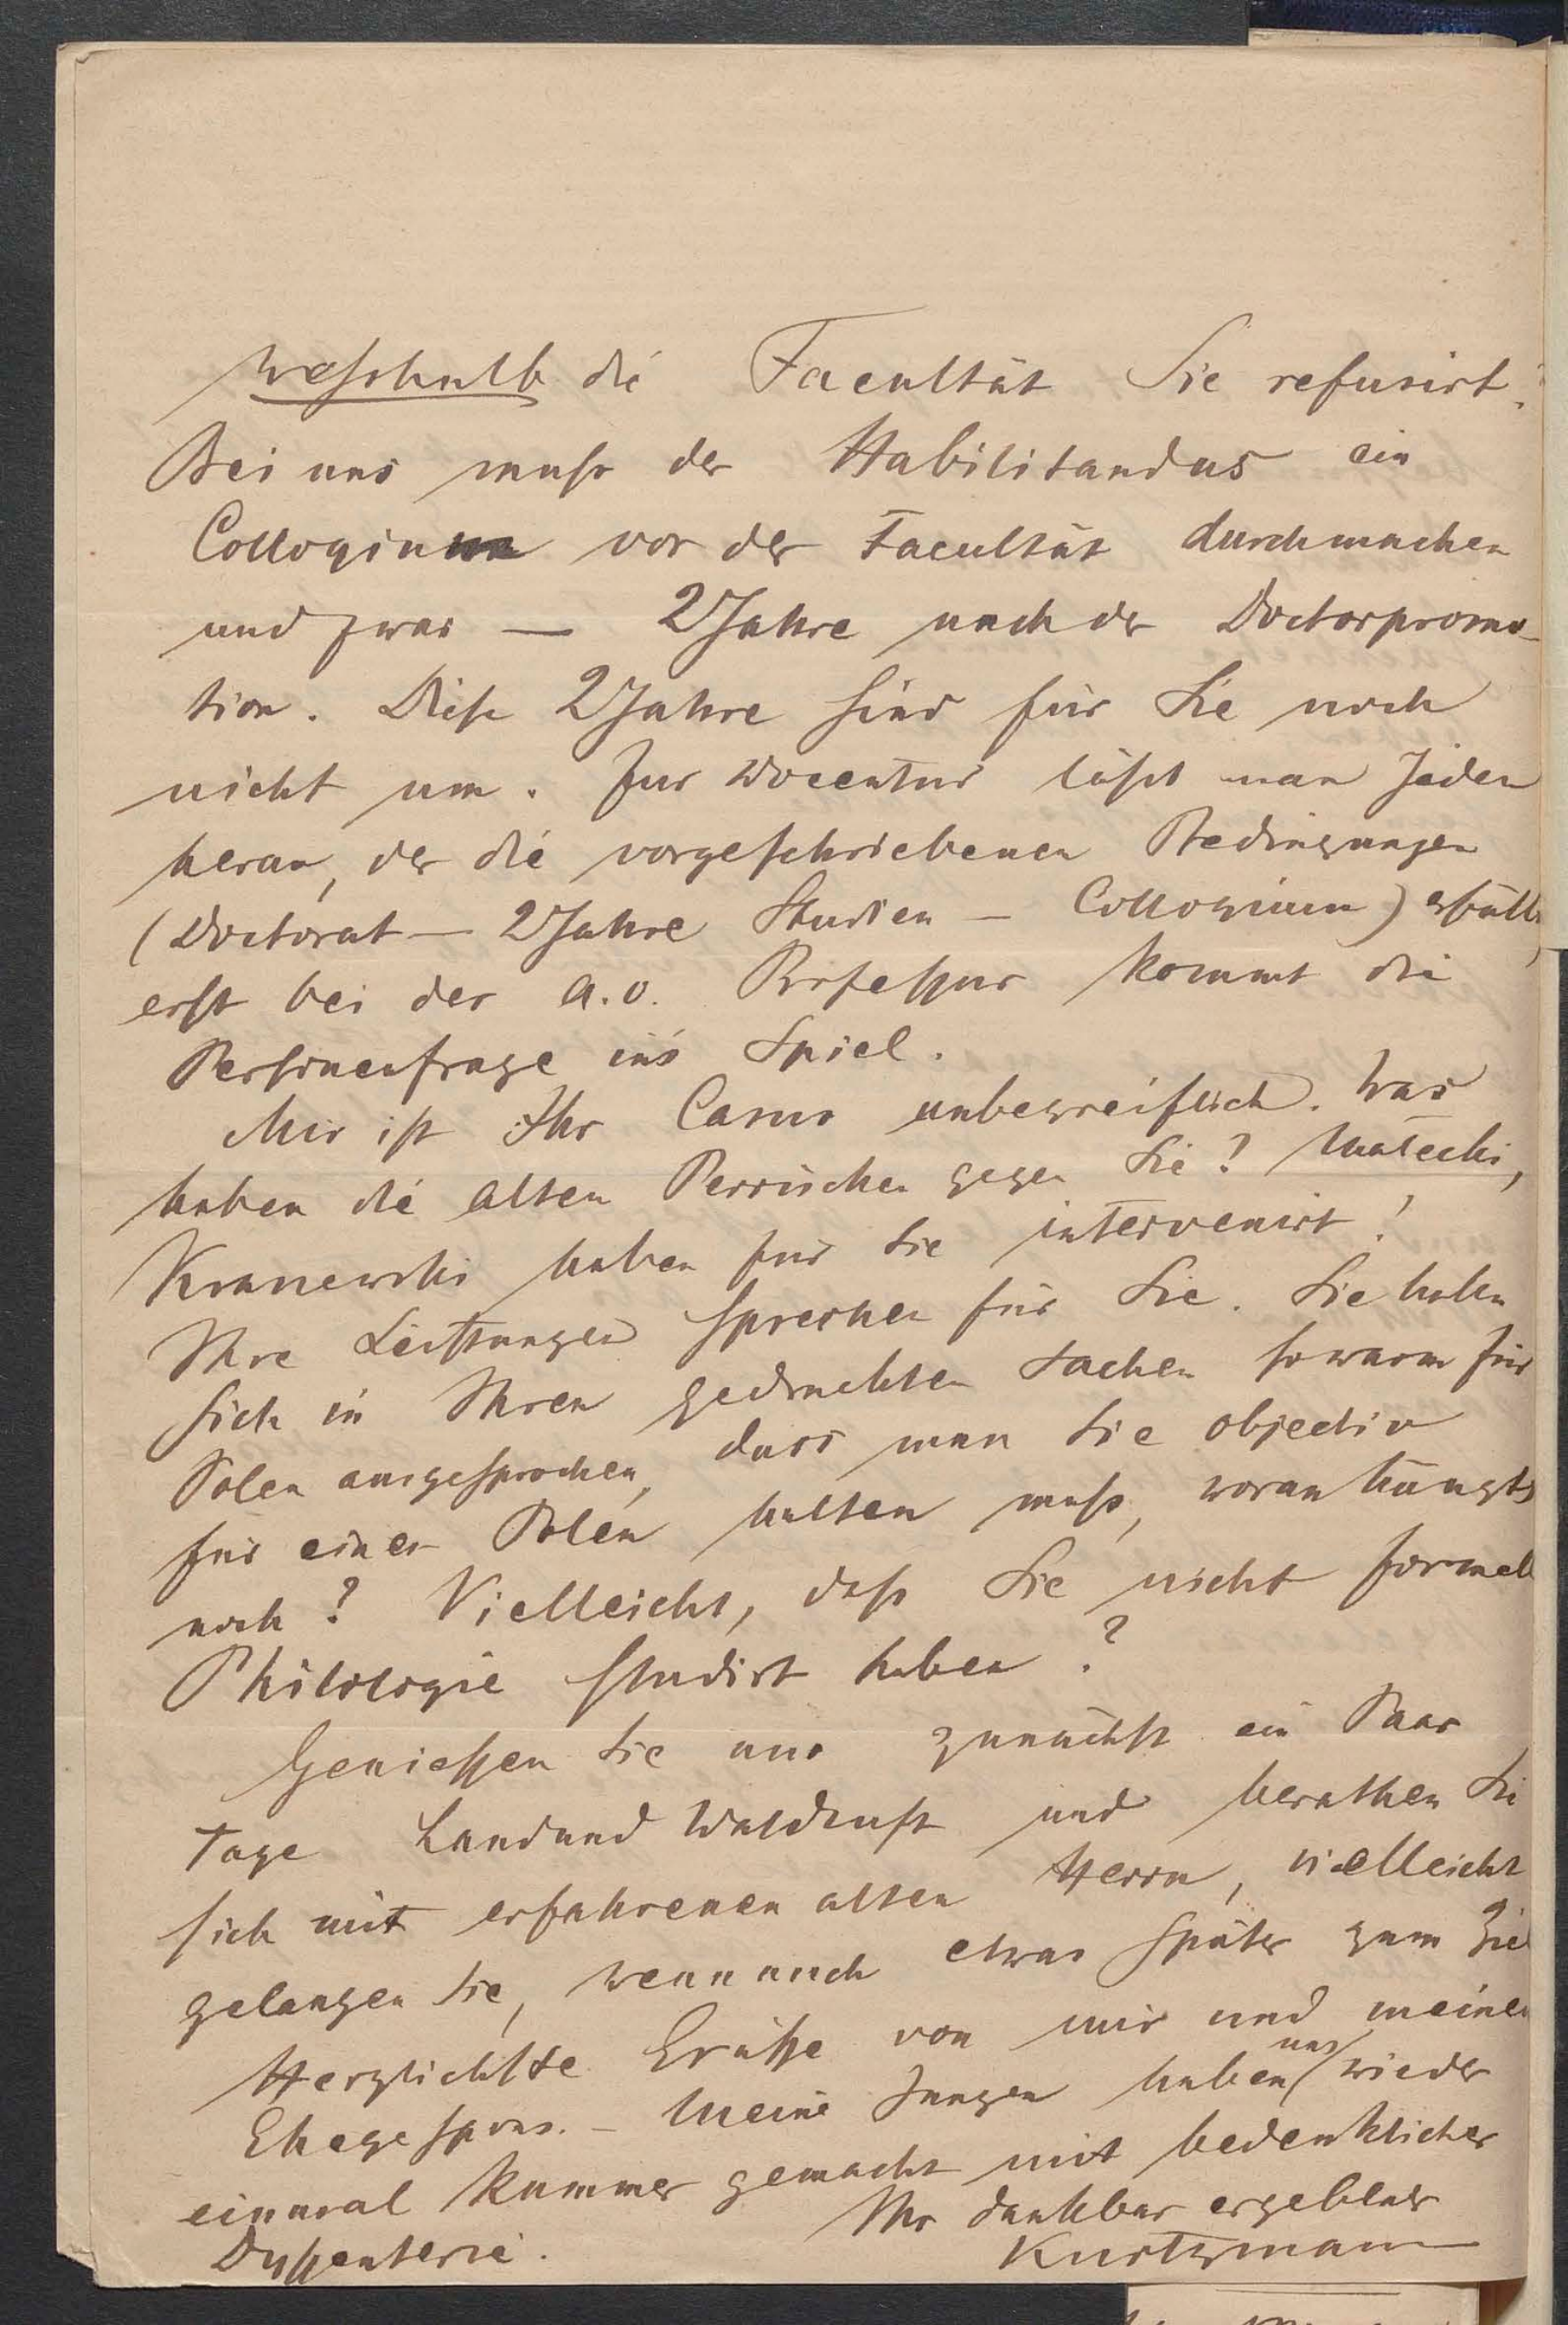 weßhalb die Facultät Sie refusirt.
Bei uns muß der Habilitandus ein
Colloquium vor der Facultät durchmachen
und zwar — 2 Jahre nach der Doctorpromo-
tion. Diese 2 Jahre sind für Sie noch
nicht um. Zur Docentur läßt man Jeden
heran, der die vorgeschriebenen Bedingungen
(Doctorat — 2 Jahre Studien — Colloquium) erfüllt,
erst bei der a.o. Professur kommt die
Personenfrage in's Spiel.
Mir ist Ihr Casus unbegreiflich. Was
haben die alten Perrücken gegen Sie? Małecki,
haben für Sie intervenirt!
Ihre Leistungen sprechen für Sie. Sie haben
sich in Ihren gedruckten Sachen so warm für
Polen ausgesprochen, dass man Sie objectiv
für einen Polen halten muß, woran hängts
noch? Vielleicht, daß Sie nicht formell
Philologie studirt haben?
Geniessen Sie nur zunächst ein Paar
Tage Land und Waldluft und berathen Sie
sich mit erfahrenen alten Herrn, vielleicht
gelangen Sie, wenn auch etwas später zum Ziel
Herzlichste Grüsse von mir und meinem
Ehegespons. — Meine Jungen haben uns wieder
einmal Kummer gemacht mit bedenklicher
Dyssenterie. Ihr dankbar ergebener
Kurtzmann